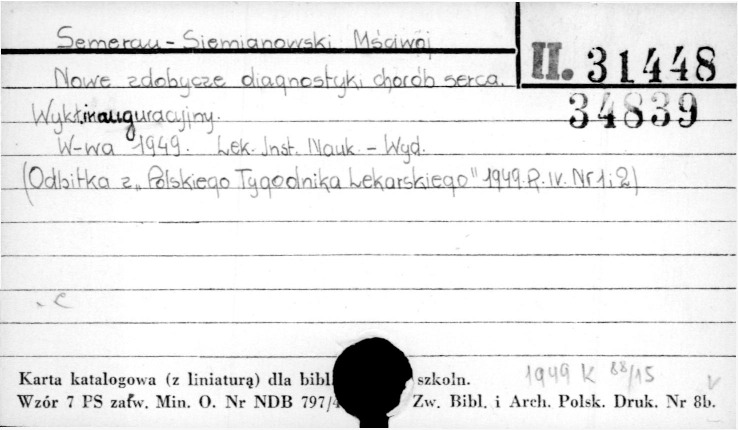 Semerau-Siemianowski Mściwój
II. 31448
34839
Nowe zdobycze diagnostyki chorób serca.
Wykł. inauguracyjny.
W-wa 1949. Lek. Inst. Nauk.-Wyd.
(Odbitka z „Polskiego Tygodnika Lekarskiego" 1949. R. IV. Nr 1 i 2)
Karta katalogowa (z liniaturą) dla bibl. szkoln.
1949 K 88/15
Wzór 7 PS zatw. Min. O. Nr NDB 797/4 Zw. Bibl. i Arch. Polsk. Druk. Nr 8b.